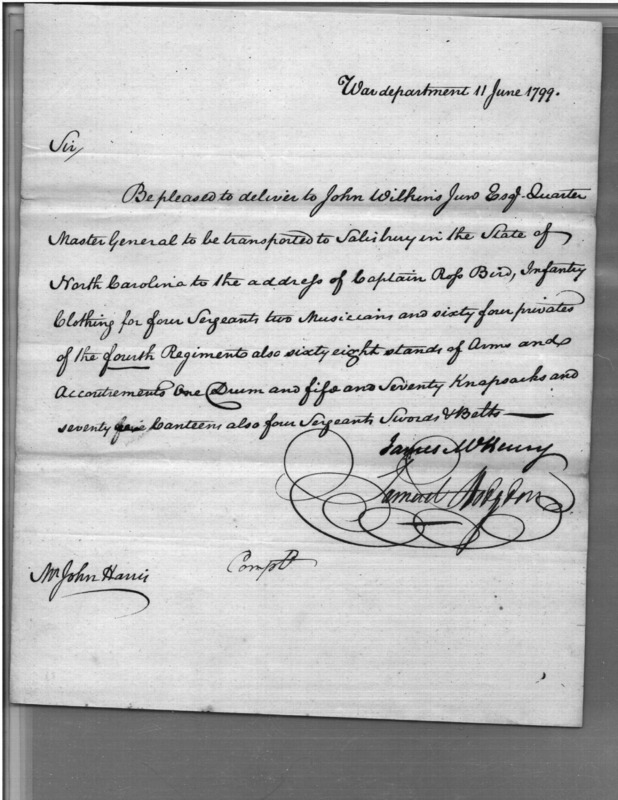 War department 11 June 1799.
Sir,
Be pleased to deliver to John Wilkins Junr Esqr. Quarter
Master General to be transported to Salisbury in the State of
North Carolina to the address of Captain Ross Bird, Infantry
Clothing for four Sergeants two Musicians and sixty four privates
of the fourth Regiment also sixty eight stands of Arms and
Accoutrements One Drum and fife and Seventy Knapsacks and
seventy Canteens also four Sergeants Swords & Belts —
James McHenry
Samuel Hodgdon
Mr John Harris
Compld